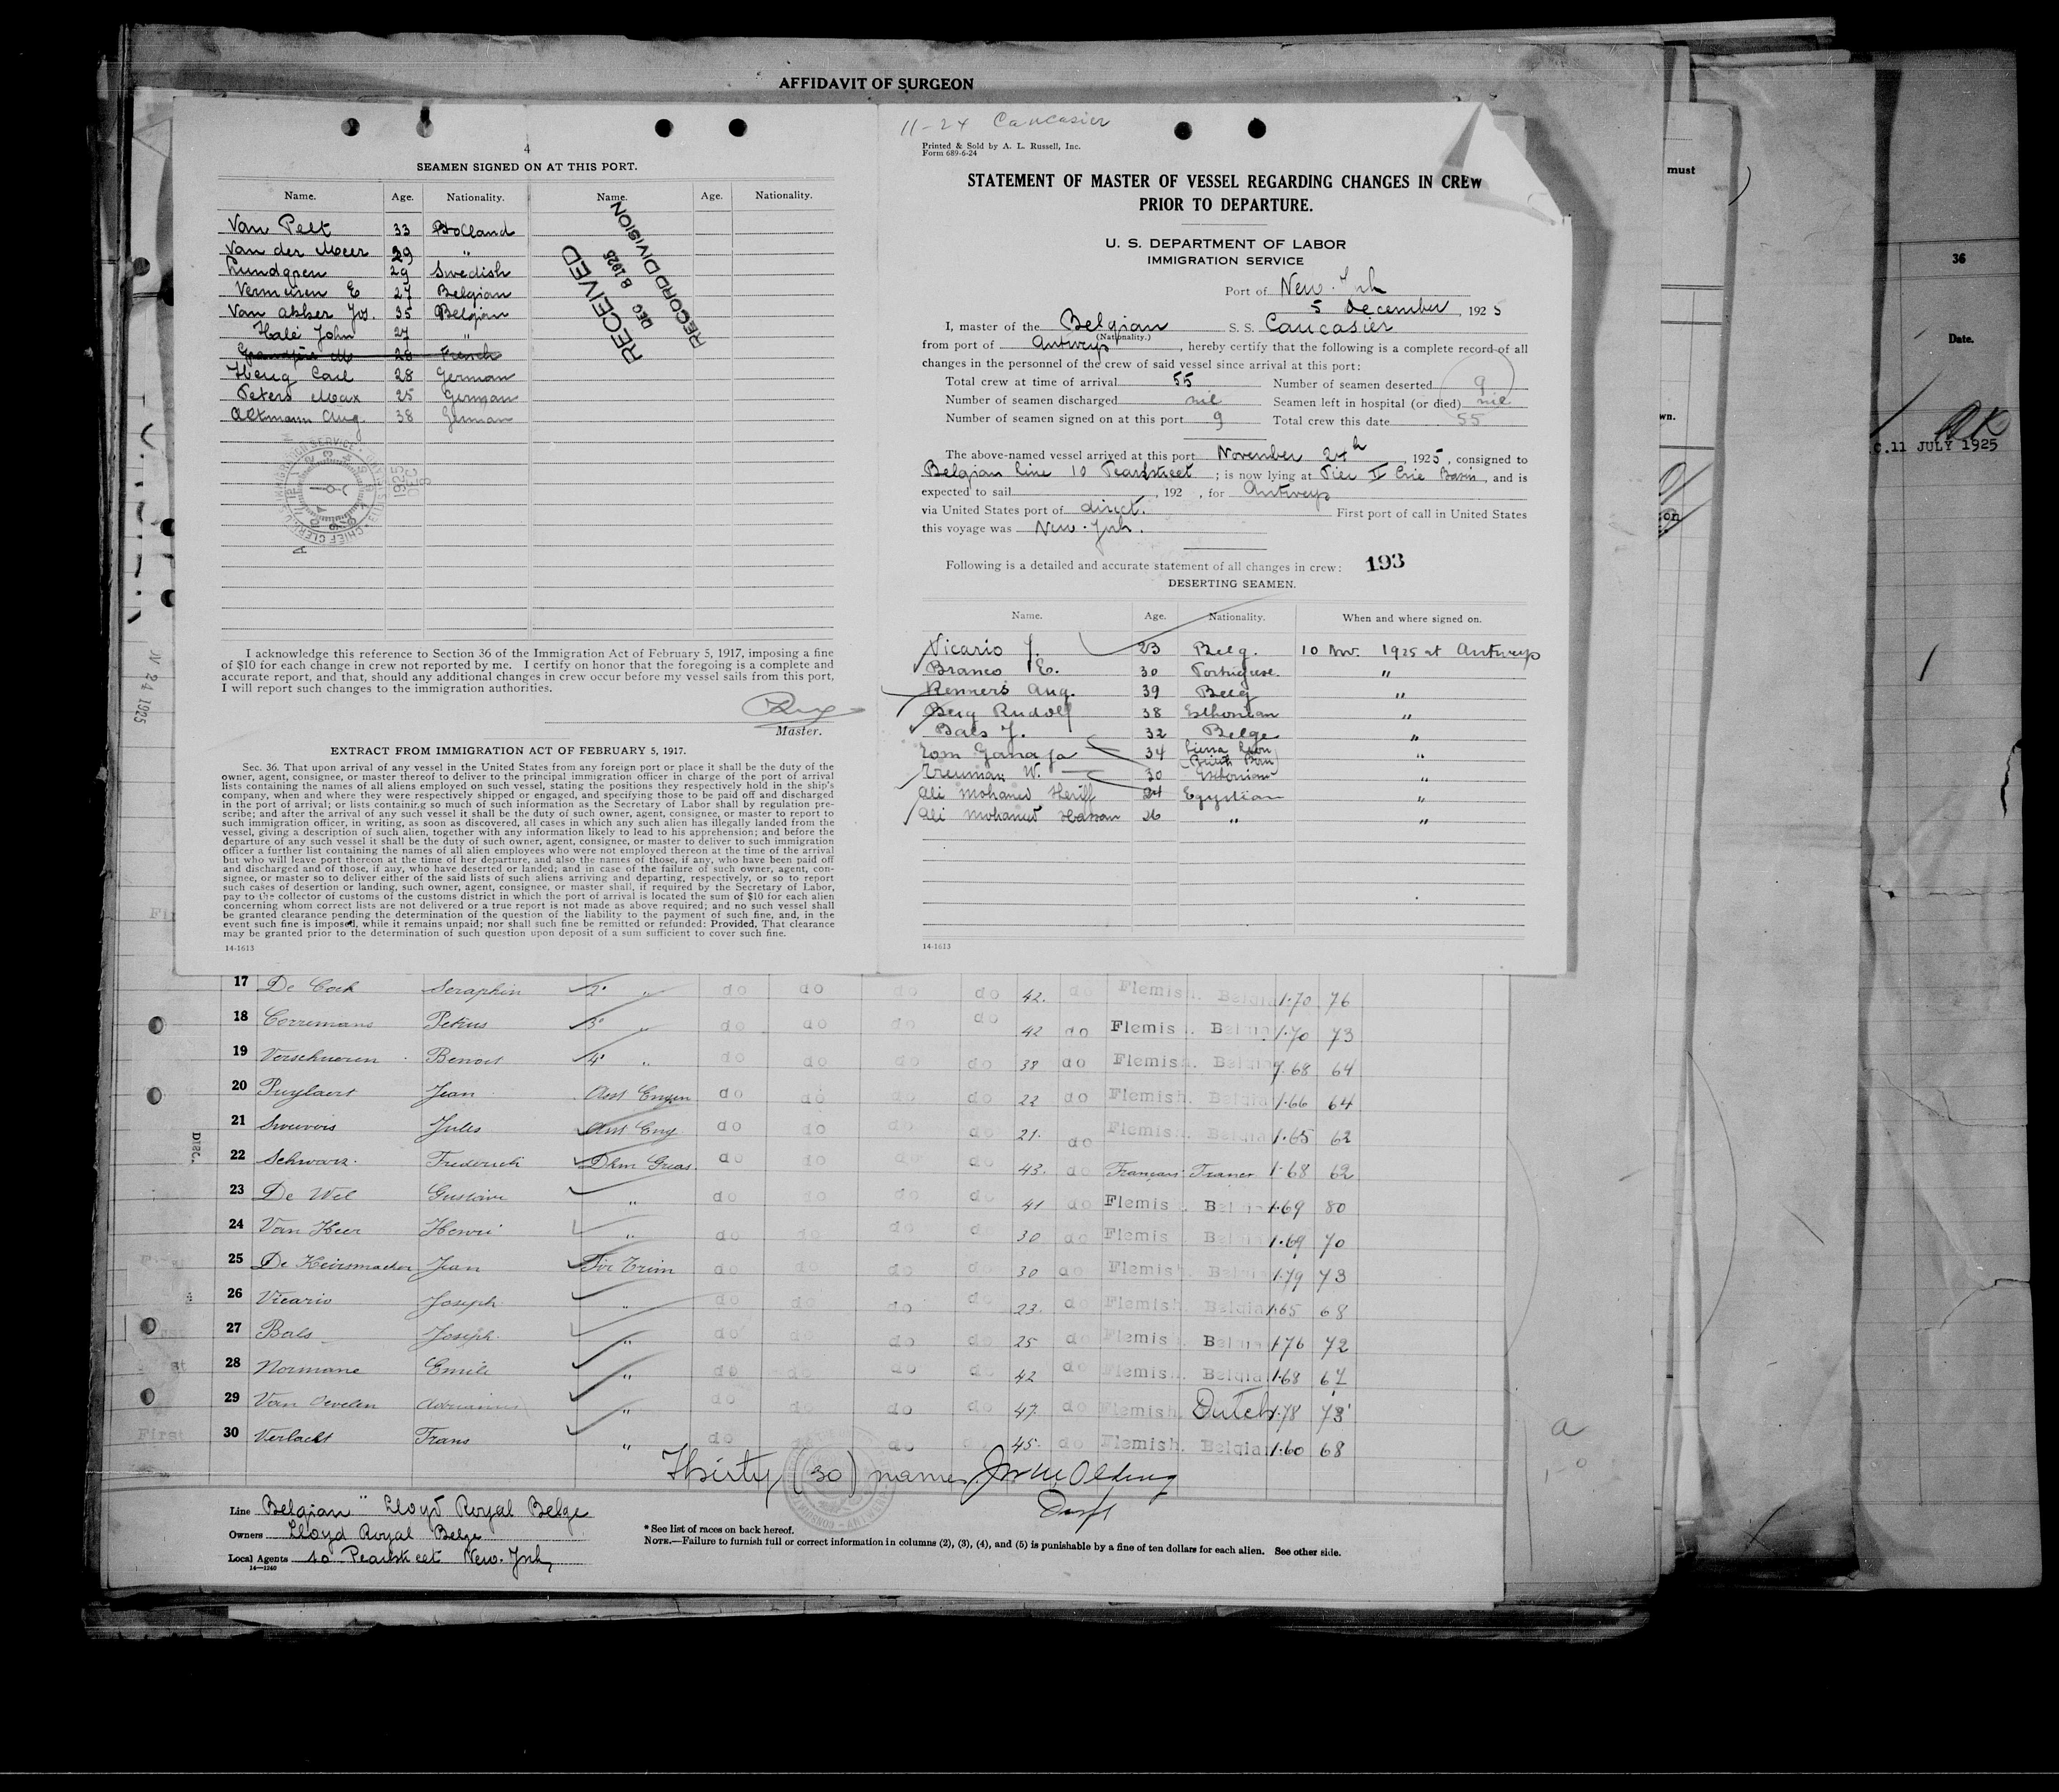 AFFIDAVIT OF SURGEON
4
SEAMEN SIGNED ON AT THIS PORT.
Name. Age. Nationality. Name. Age. Nationality.
Van Pelt 33 Holland
Van der Meer 29 "
Lundgren 29 Swedish
Vermeiren E 27 Belgian
Van akker Jos. 35 Belgian
Halé John 27 "
28 French
Herig Carl 28 German
Peters Max 25 German
Altmann Aug. 38 German
RECEIVED
DEC 8 1925
RECORD DIVISION
I acknowledge this reference to Section 36 of the Immigration Act of February 5, 1917, imposing a fine
of $10 for each change in crew not reported by me. I certify on honor that the foregoing is a complete and
accurate report, and that, should any additional changes in crew occur before my vessel sails from this port,
I will report such changes to the immigration authorities.
Master.
EXTRACT FROM IMMIGRATION ACT OF FEBRUARY 5, 1917.
Sec. 36. That upon arrival of any vessel in the United States from any foreign port or place it shall be the duty of the
owner, agent, consignee, or master thereof to deliver to the principal immigration officer in charge of the port of arrival
lists containing the names of all aliens employed on such vessel, stating the positions they respectively hold in the ship's
company, when and where they were respectively shipped or engaged, and specifying those to be paid off and discharged
in the port of arrival; or lists containing so much of such information as the Secretary of Labor shall by regulation pre-
scribe; and after the arrival of any such vessel it shall be the duty of such owner, agent, consignee, or master to report to
such immigration officer, in writing, as soon as discovered, all cases in which any such alien has illegally landed from the
vessel, giving a description of such alien, together with any information likely to lead to his apprehension; and before the
departure of any such vessel it shall be the duty of such owner, agent, consignee, or master to deliver to such immigration
officer a further list containing the names of all alien employees who were not employed thereon at the time of the arrival
but who will leave port thereon at the time of her departure, and also the names of those, if any, who have been paid off
and discharged and of those, if any, who have deserted or landed; and in case of the failure of such owner, agent, con-
signee, or master so to deliver either of the said lists of such aliens arriving and departing, respectively, or so to report
such cases of desertion or landing, such owner, agent, consignee, or master shall, if required by the Secretary of Labor,
pay to the collector of customs of the customs district in which the port of arrival is located the sum of $10 for each alien
concerning whom correct lists are not delivered or a true report is not made as above required; and no such vessel shall
be granted clearance pending the determination of the question of the liability to the payment of such fine, and, in the
event such fine is imposed, while it remains unpaid; nor shall such fine be remitted or refunded: Provided, That clearance
may be granted prior to the determination of such question upon deposit of a sum sufficient to cover such fine.
14-1613
11-24 Caucasier
Printed & Sold by A. L. Russell, Inc.
Form 689-6-24
STATEMENT OF MASTER OF VESSEL REGARDING CHANGES IN CREW
PRIOR TO DEPARTURE.
U. S. DEPARTMENT OF LABOR
IMMIGRATION SERVICE
Port of New-York
5 December, 1925
I, master of the Belgian S. S. Caucasier
(Nationality.)
from port of Antwerp, hereby certify that the following is a complete record of all
changes in the personnel of the crew of said vessel since arrival at this port:
Total crew at time of arrival 55 Number of seamen deserted 9
Number of seamen discharged nil Seamen left in hospital (or died) nil
Number of seamen signed on at this port 9 Total crew this date 55
The above-named vessel arrived at this port November 24th, 1925, consigned to
Belgian line 10 Pearlstreet; is now lying at Pier II Erie Basin, and is
expected to sail , 192 , for Antwerp
via United States port of direct. First port of call in United States
this voyage was New-York.
Following is a detailed and accurate statement of all changes in crew: 193
DESERTING SEAMEN.
Name. Age. Nationality. When and where signed on.
Vicario J. 23 Belg. 10 Nov. 1925 at Antwerp
Branco E. 30 Portuguese. "
Renners Aug. 39 Belg "
Berg Rudolf 38 Esthonian "
Bals J. 32 Belge "
Tom 34 Sierra Leon (British Born) "
Treuman W. 30 Esthonian "
Ali Mohamed Heriff 24 Egyptian "
Ali Mohamed Hassan 26 " "
14-1613
17 De Cock Seraphin 2° " do do do do 42. do Flemish. Belgian 1.70 76
18 Corremans Petrus 3° " do do do do 42 do Flemish. Belgian 1.70 73
19 Verschueren Benoit 4° " do do do do 38 do Flemish. Belgian 1.68 64
20 Puylaert Jean Asst Engen do do do do 22 do Flemish. Belgian 1.66 64
21 Jules Asst Eng do do do do 21. do Flemish. Belgian 1.65 62
22 Schwarz. Frederich Dkm Greas. do do do do 43. do Français France 1.68 62
23 De Wel Gustave " do do do do 41 do Flemish Belgian 1.69 80
24 Van Heer Henri " do do do do 30 do Flemish Belgian 1.69 70
25 De Keirsmacker Jean Fir Trim do do do do 30 do Flemish. Belgian 1.79 73
26 Vicario Joseph " do do do do 23. do Flemish. Belgian 1.65 68
27 Bals Joseph. " do do do do 25 do Flemish Belgian 1.76 72
28 Normane Emile " do do do do 42 do Flemish. Belgian 1.68 67
29 Van Oevelen Adrianus " do do do do 47. do Flemish. Dutch 1.78 73
30 Verlackt Frans " do do do do 45. do Flemish. Belgian 1.60 68
Thirty (30) names
Line Belgian "Lloyd Royal Belge
Owners Lloyd Royal Belge
Local Agents 10 Pearlstreet New-York
14-1240
* See list of races on back hereof.
NOTE.—Failure to furnish full or correct information in columns (2), (3), (4), and (5) is punishable by a fine of ten dollars for each alien. See other side.
DISC.
NOV 24 1925
First
must
wn.
36
Date.
C.11 JULY 1925